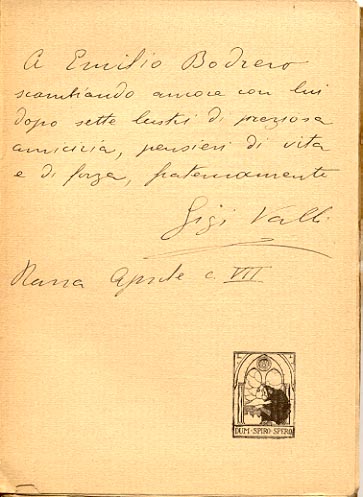 A Emilio Bodrero
scambiando ancora con lui
dopo sette lustri di preziosa
amicizia, pensieri di vita
e di forza, fraternamente
Gigi Valli
Roma Aprile a. VII
DUM · SPIRO · SPERO